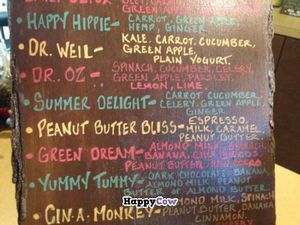 GREEN APPLE
• HAPPY HIPPIE - CARROT, GREEN APPLE,
HEMP, GINGER.
• DR. WEIL - KALE, CARROT, CUCUMBER,
GREEN APPLE,
PLAIN YOGURT.
• DR. OZ - SPINACH, CUCUMBER, CELERY
GREEN APPLE, PARSLEY
LEMON, LIME,
• SUMMER DELIGHT - CARROT, CUCUMBER,
CELERY, GREEN APPLE,
GINGER.
• PEANUT BUTTER BLISS - ESPRESSO,
MILK, CARAMEL,
PEANUT BUTTER.
• GREEN DREAM - ALMOND MILK, SPINACH,
BANANA, CHIA SEEDS
PEANUT BUTTER
• YUMMY TUMMY - DARK CHOCOLATE, BANANA
ALMOND MILK, PEANUT
BUTTER OR ALMOND BUTTER
• CIN-A-MONKEY - ALMOND MILK, SPINACH
PEANUT BUTTER, BANANA
CINNAMON.
HappyCow